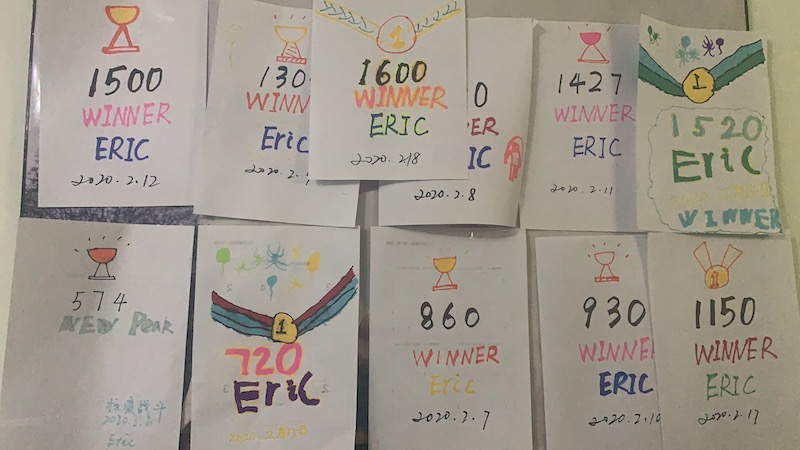 1500
WINNER
ERIC
2020.2.12
130
WINN
Eric
2020.2.
1
1600
WINNER
ERIC
2020.2.18
0
ER
IC
2020.2.8
1427
WINNER
ERIC
2020.2.11
1
1520
Eric
WINNER
574
NEW Peak
抗疫战斗
Eric
1
720
Eric
860
WINNER
Eric
2020.2.7
930
WINNE
ERIC
2020.2.10
1
1150
WINNER
ERIC
2020.2.17